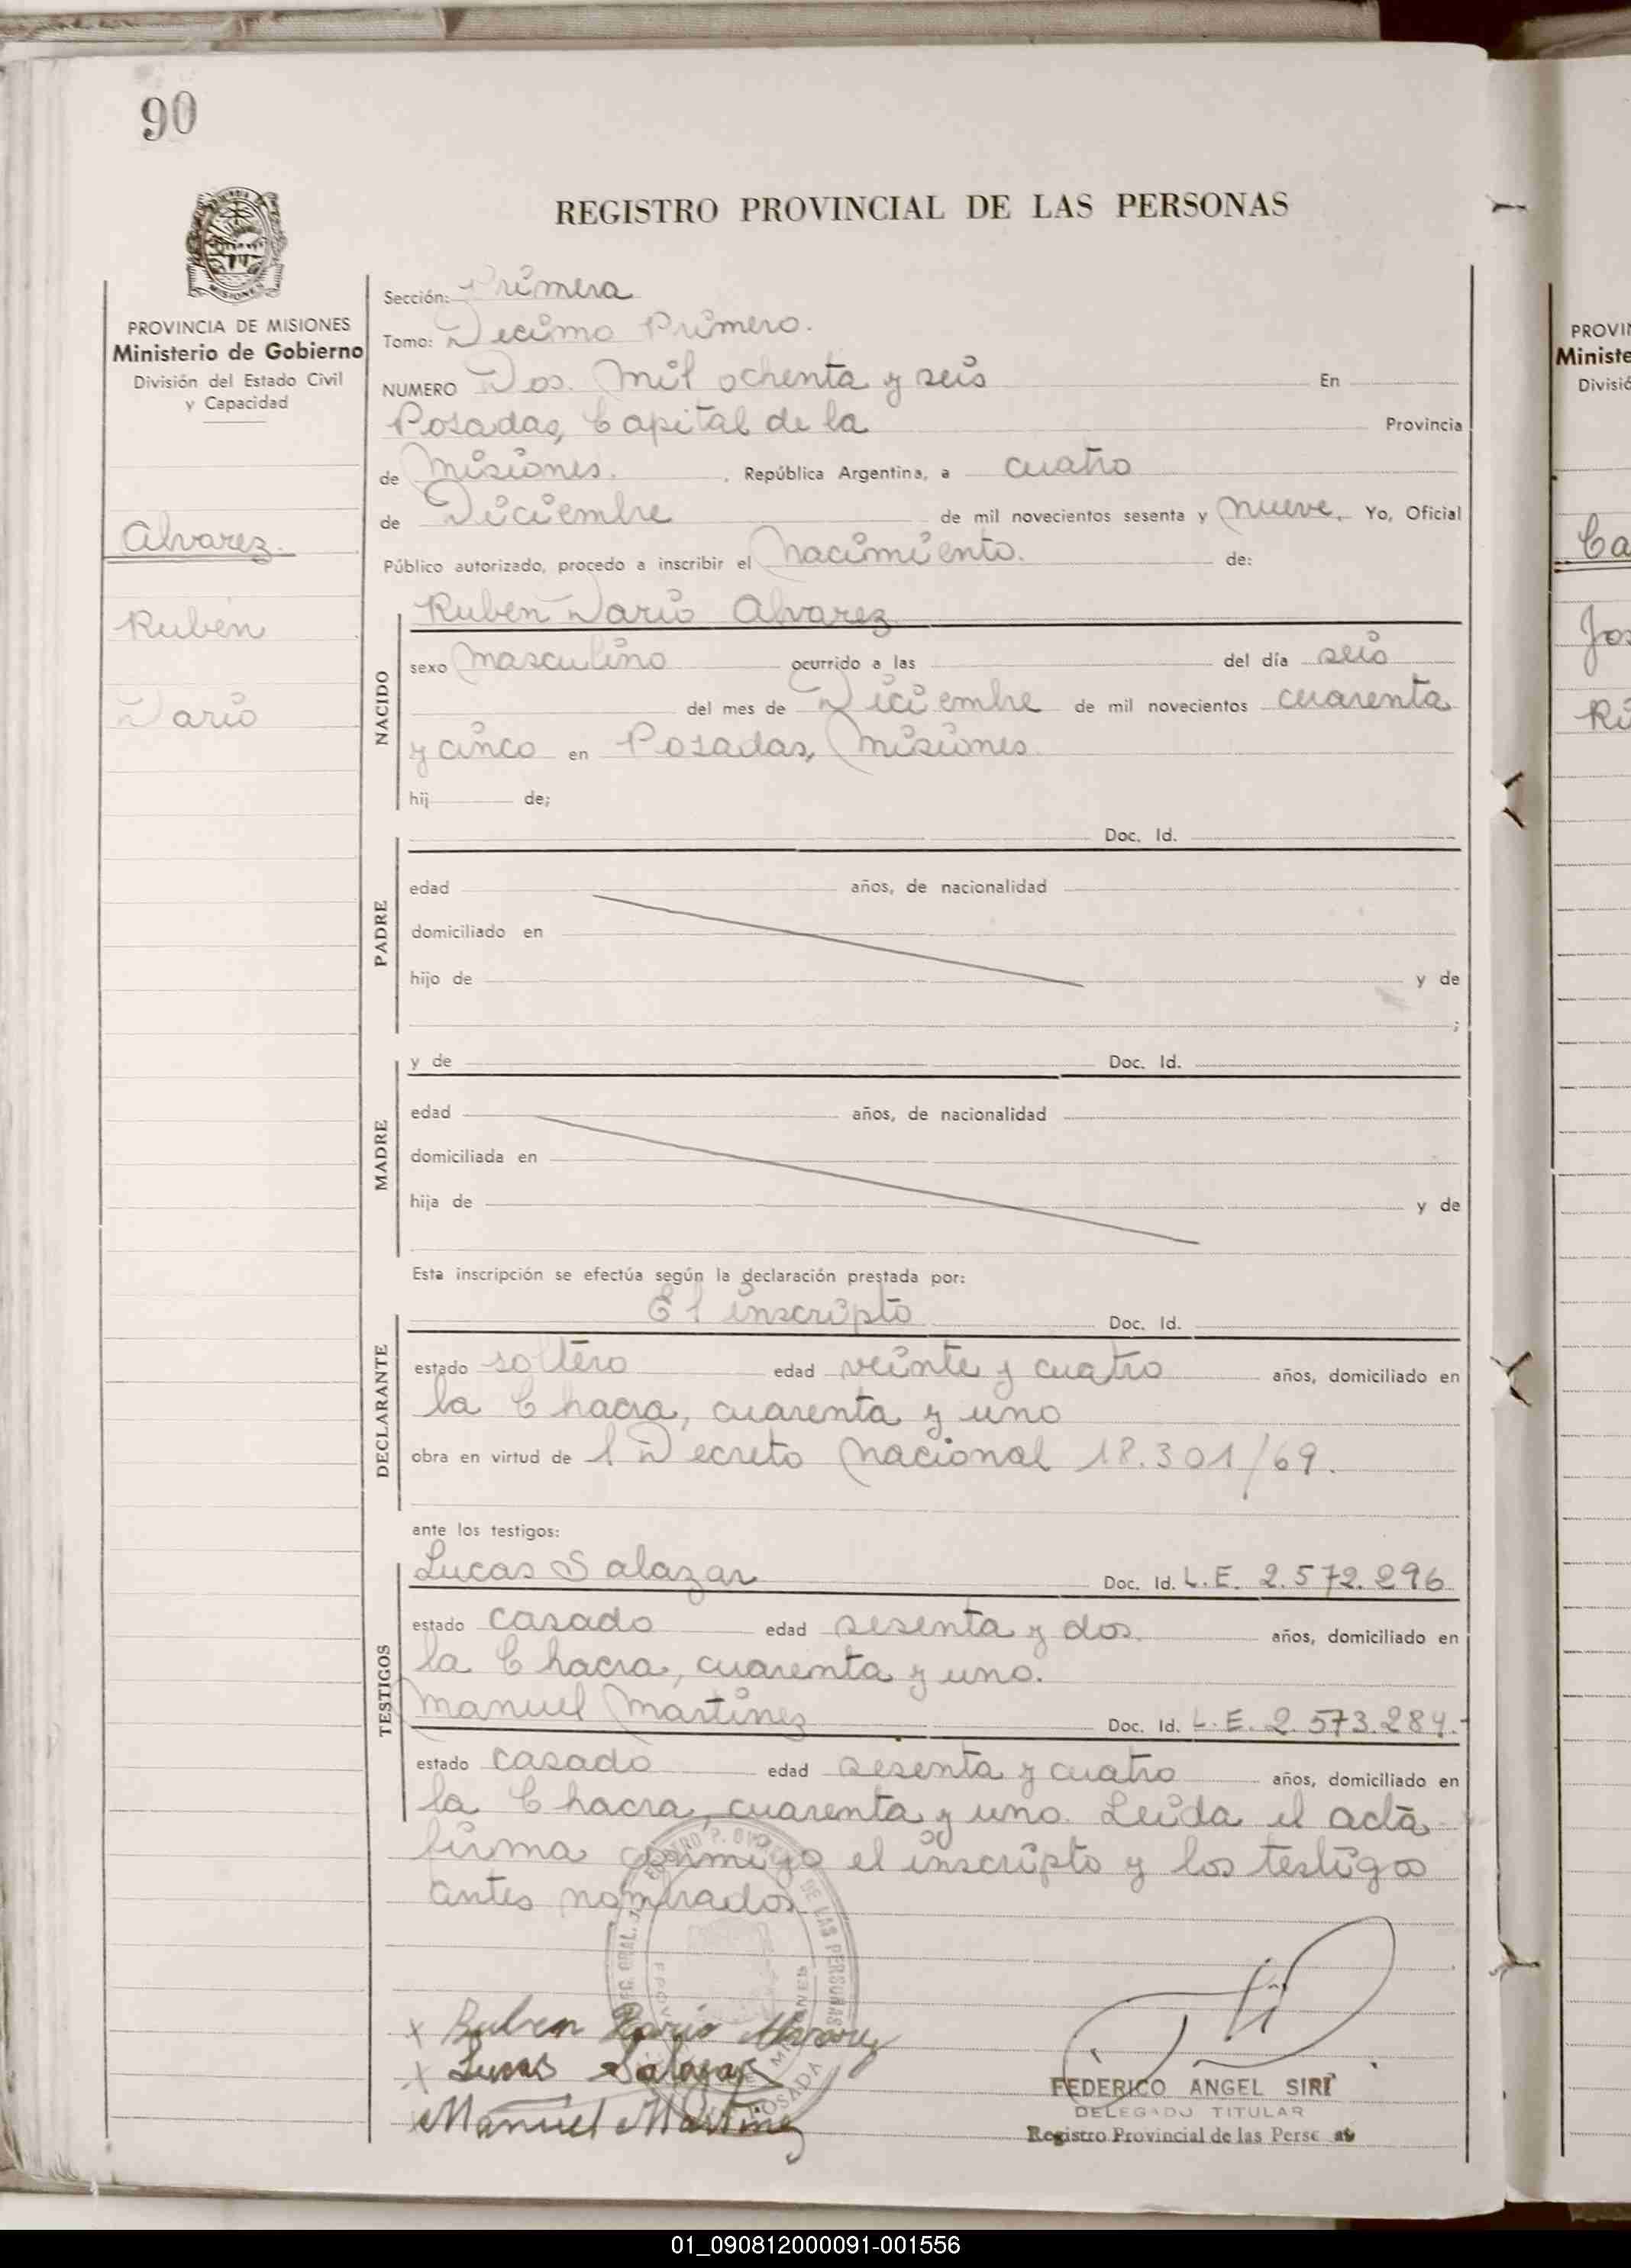 90
REGISTRO PROVINCIAL DE LAS PERSONAS
MISIONES
PROVINCIA DE MISIONES
Ministerio de Gobierno
División del Estado Civil
y Capacidad
Alvarez.
Rubén
Dario
Sección: Primera
Tomo: Decimo Primero.
NUMERO Dos Mil ochenta y seis En
Posadas, Capital de la Provincia
de Misiones. , República Argentina, a cuatro
de Diciembre de mil novecientos sesenta y nueve. Yo, Oficial
Público autorizado, procedo a inscribir el Nacimiento. de:
NACIDO
Ruben Dario Alvarez
sexo masculino ocurrido a las del día seis
del mes de Diciembre de mil novecientos cuarenta
y cinco en Posadas, Misiones
hij de;
PADRE
Doc. Id.
edad años, de nacionalidad
domiciliado en
hijo de y de
;
MADRE
y de Doc. Id.
edad años, de nacionalidad
domiciliada en
hija de y de
Esta inscripción se efectúa según la declaración prestada por:
DECLARANTE
El inscripto Doc. Id.
estado soltero edad veinte y cuatro años, domiciliado en
la Chacra, cuarenta y uno
obra en virtud de l Decreto Nacional 18.301/69.
ante los testigos:
TESTIGOS
Lucas Salazar Doc. Id. L.E. 2.572.296
estado casado edad sesenta y dos. años, domiciliado en
la Chacra, cuarenta y uno.
Manuel Martinez Doc. Id. L.E. 2.573.284.-
estado casado edad sesenta y cuatro años, domiciliado en
la Chacra, cuarenta y uno. Leida el acta
firma conmigo el inscripto y los testigos
antes nombrados
DE LAS PERSONAS
MISIONES
x Ruben Dario Alvarez
x Lucas Salazar
Manuel Martinez
FEDERICO ANGEL SIRI
DELEGADO TITULAR
Registro Provincial de las Perse as
PROVIN
Ministe
Divisió
Ca
Jos
Ri
01_090812000091-001556